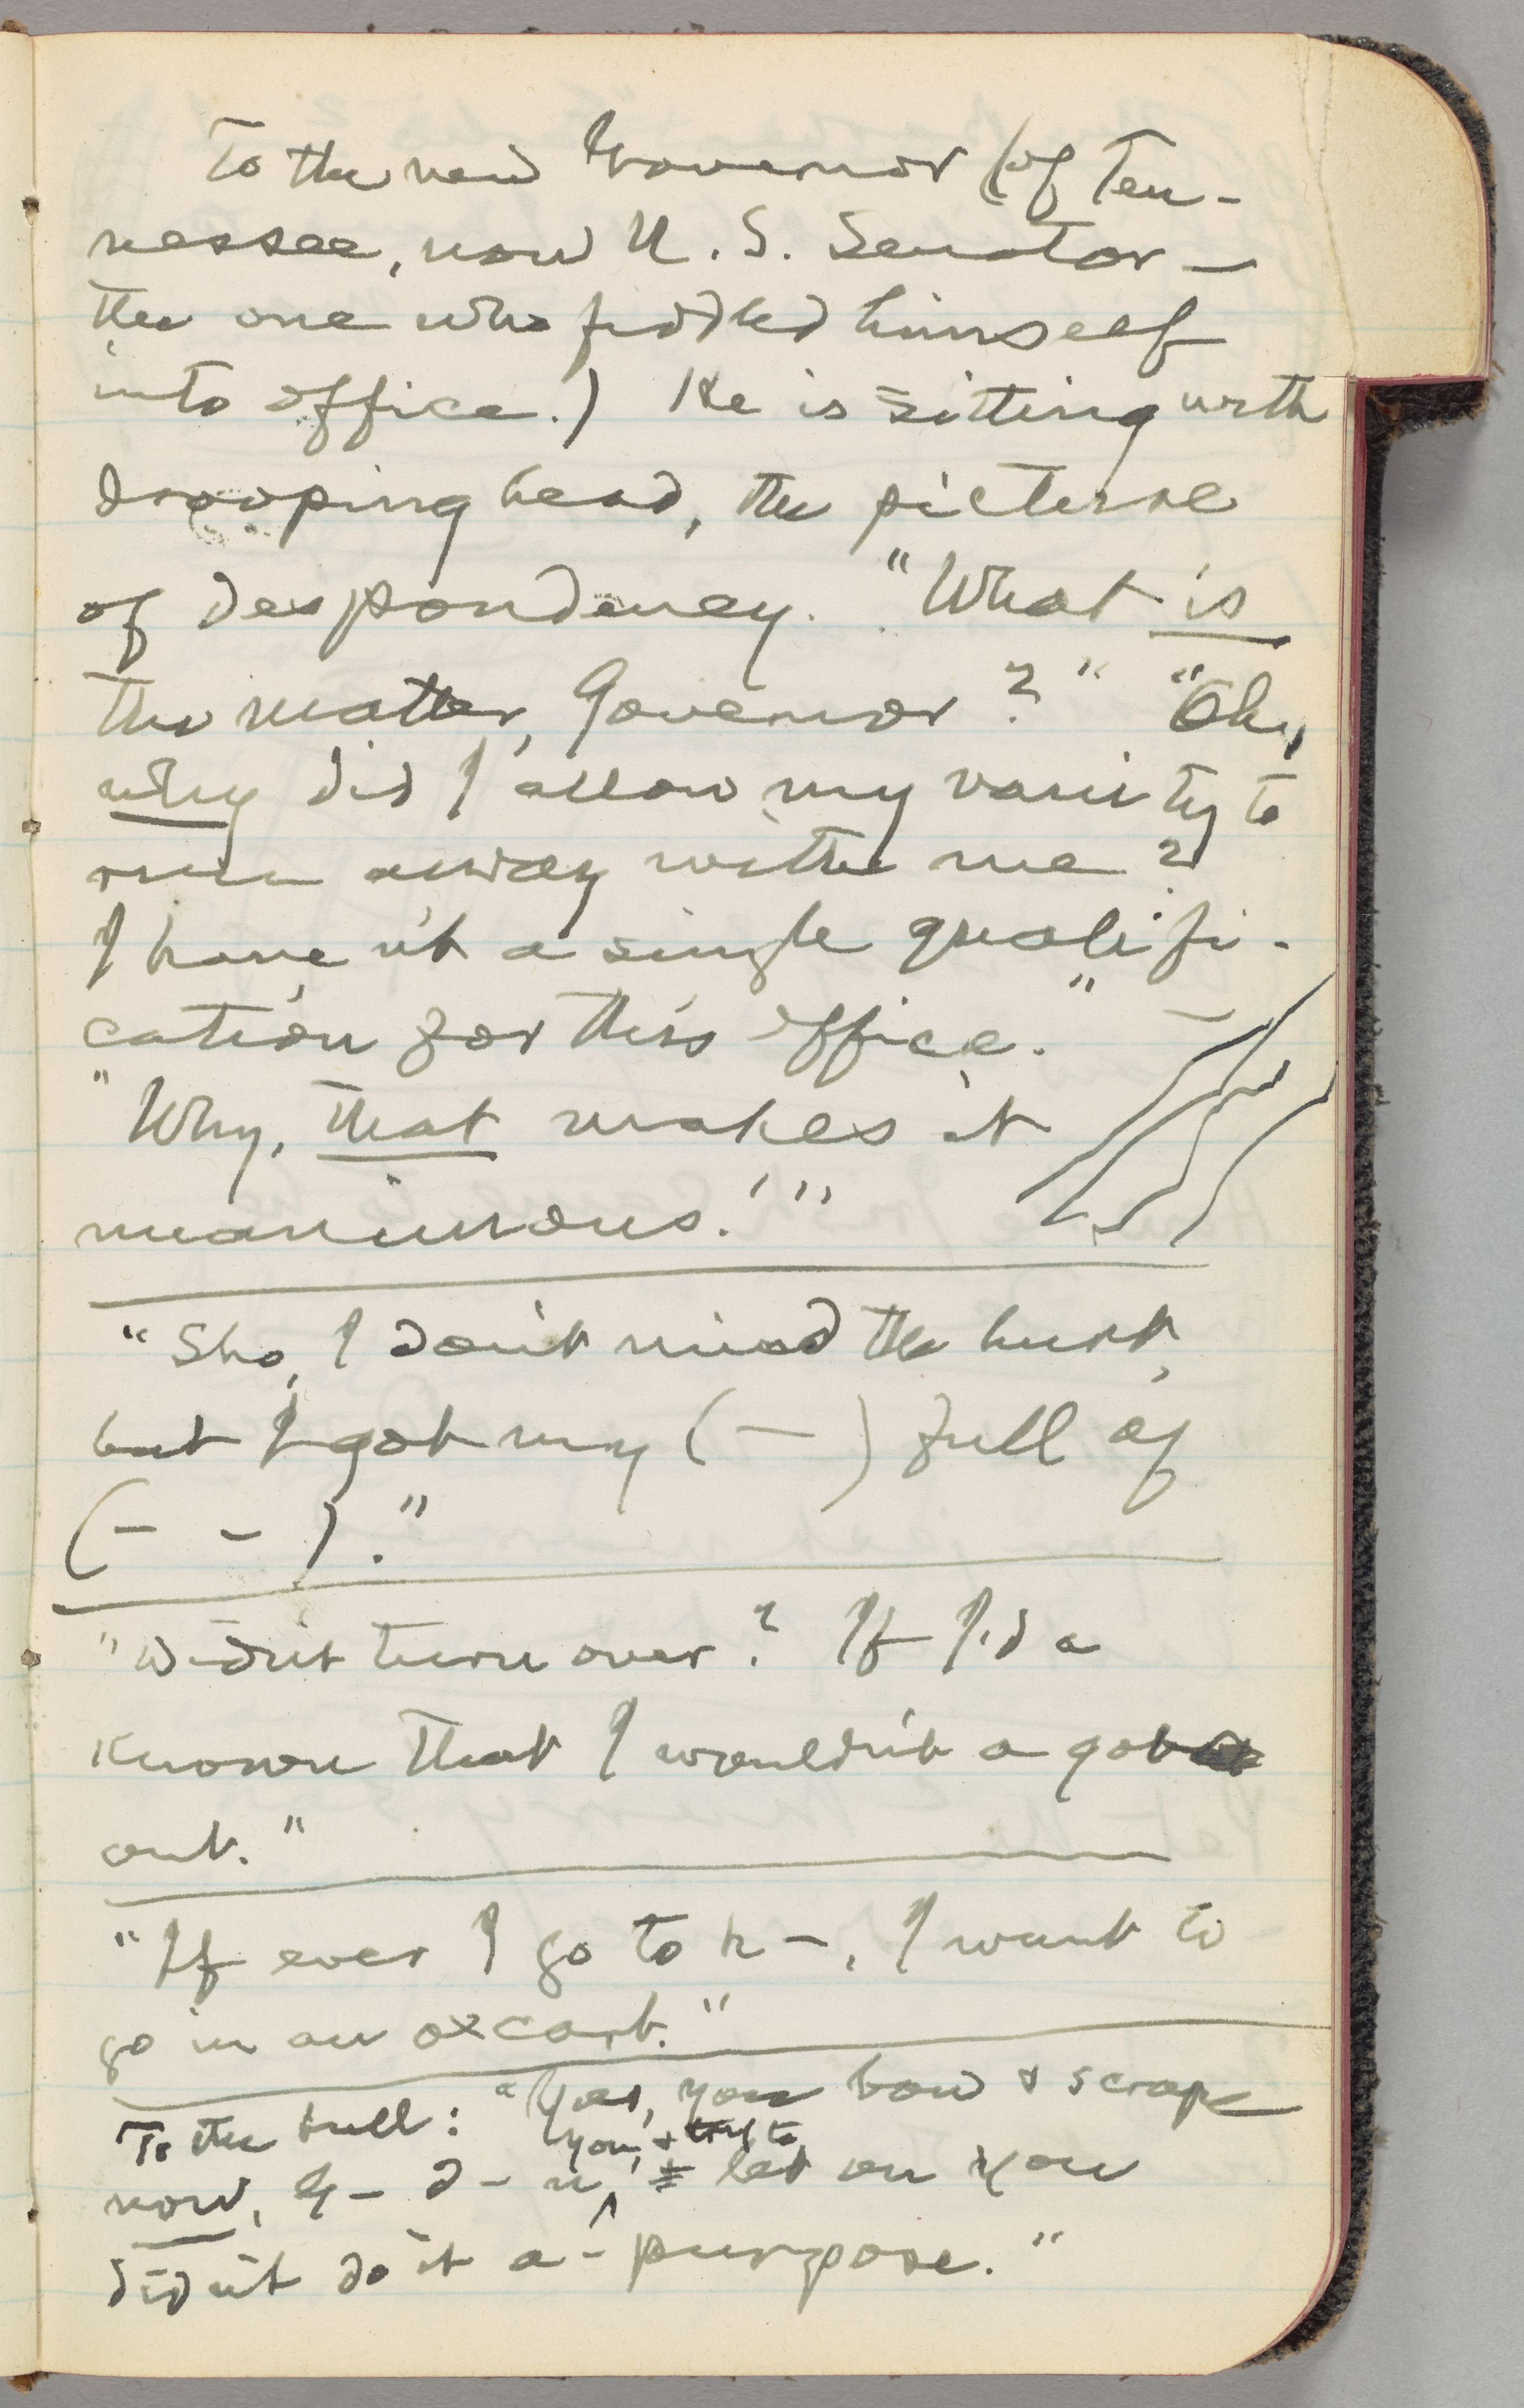 To the new Governor (of Ten-
nessee, now U. S. Senator —
the one who fiddled himself
into office.) He is sitting with
drooping head, the picture
of despondency. "What is
the matter, Governor?" "Oh,
why did I allow my vanity to
run away with me?
I have n't a single qualifi-
cation for this office." —
"Why, that makes it
unanimous!"
"Sho, I don't mind the hurt,
but I got my (—) full of
(— —)."
"Didn't turn over? If I'd a
known that I wouldn't a got
out."
"If ever I go to h—, I want to
go in an oxcart."
To the bull: "Yes, you bow & scrape
you, & try to
now, G— d— n, & let on you
didn't do it a-purpose."